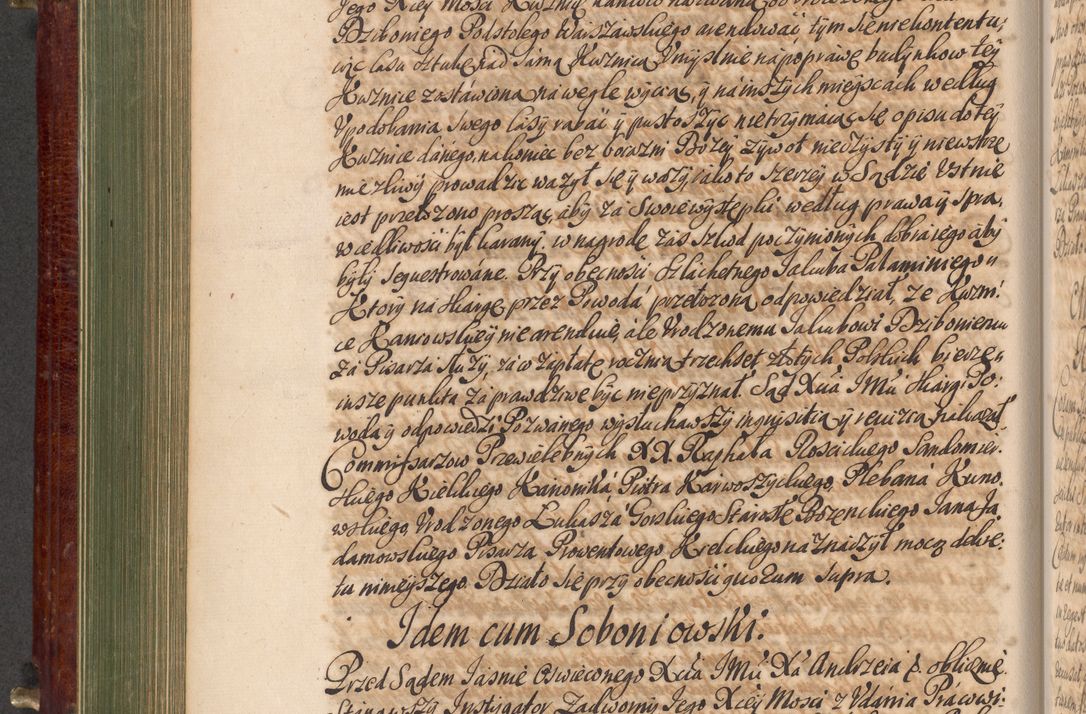 Jego Xcey Mosci Kuznię
Dziboniego Podstolego Warszawskiego arendować tym sie niekontentu,
iąc lasu sztukę nad samą Kuznicą Vmyslnie na poprawę budynkow tey
Kuznice zostawioną na węgle wyciąć, y na inszych mieyscach według
Vpodobania swego lasy rąbać y pustoszyć nietrzymaiąc się opisu do tey
Kuznice danego, na koniec bez boiazni Bozey zywot nieczysty y niewstrze
mięzliwy prowadzic wazył się y wazy, iako to szerzey w Sądzie Vstnie
iest przełozono prosząc, aby za swoie występki według prawa y spra,
wiedliwosci był karany, w nagrodę zas szkod poczynionych dobra iego aby
były sequestrowane. Przy obecnosci Szlachetnego Jakuba Palaminiego
Ktory na skargę przez Powodá przełozoną odpowiedział, ze Kuzni,
ce Kanrowskiey nie arenduie, ale Vrodzonemu Jakubowi Dziboniemu
za Pisarza słuzy, za co zapłatę rocznią trzechset złotych Polskich bierze
insze punkta za prawdziwe być nieprzyznał. Sąd Xcia JMci skargi Po:
woda y odpowiedzi Pozwanego wysłuchawszy inquisitią y rewizią nakazał
Commissarzow Przewielebnych XX. Raphała Roscickiego Sandomier.
skiego Kielckiego Kanonika, Piotra Karwoszyckiego, Plebana Kuno.
wskiego, Vrodzonego Łukasza Gorskiego Starostę Bozenckiego Jana Ja.
damowskiego Pisarza Prowentowego Kielckiego naznaczył mocą dekre,
tu ninieyszego. Działo się przy obecnosci quorum supra.
Idem cum Soboniowski.
Przed Sądem Jasnie Oswieconego Xcia JMci Xa Andrzeia p. oblicznie
Stanąwszy Instigator Zadworny Jego Xcey Mosci z Vdania Pracowi